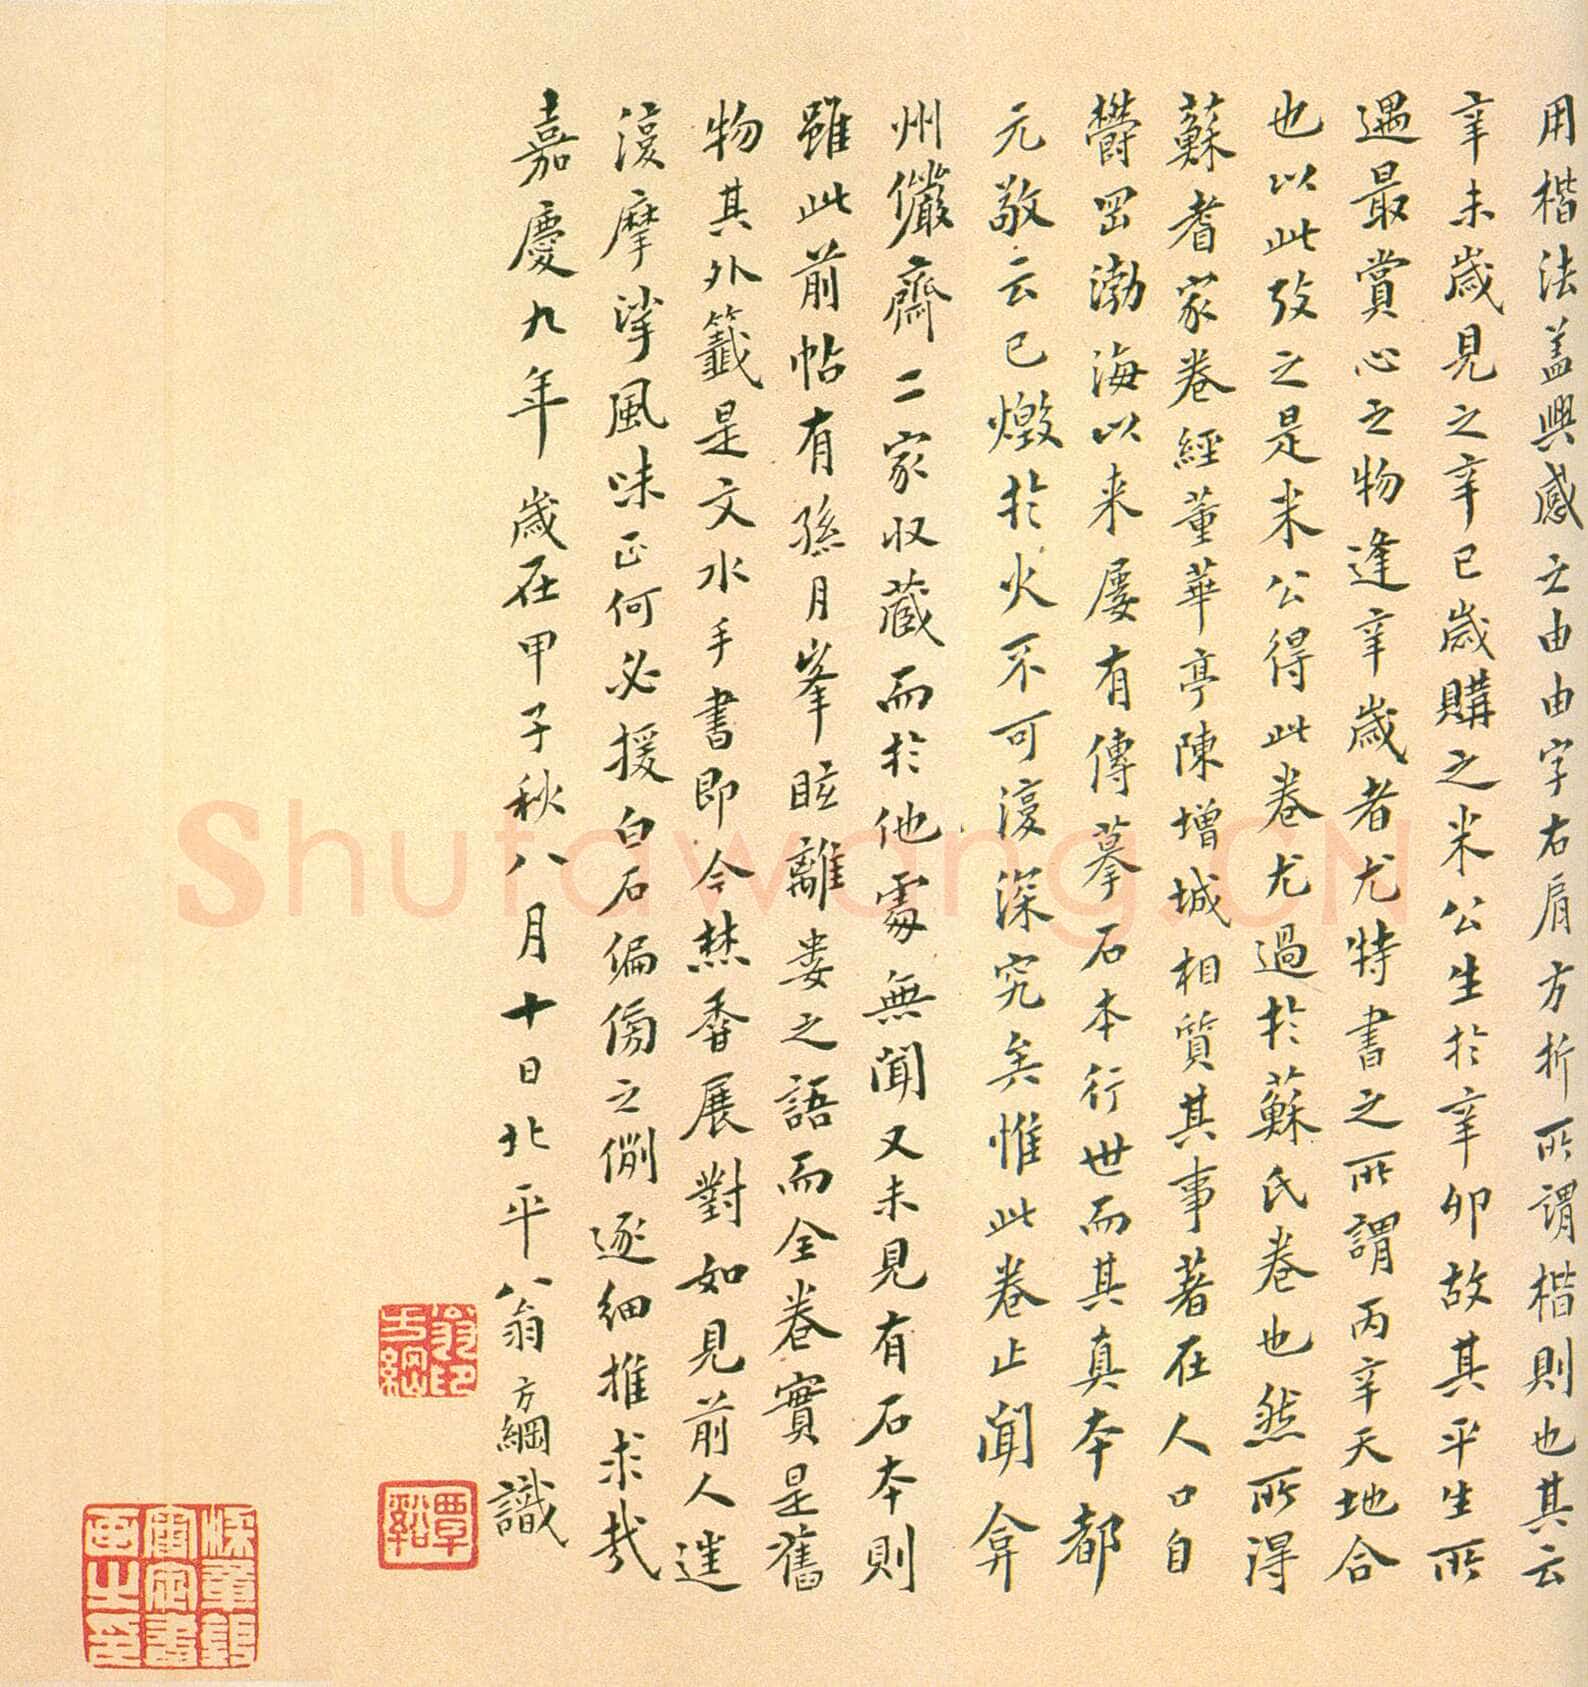 用楷法蓋興感之由由字右肩方折所謂楷則也其云
辛未歲見之辛巳歲購之米公生於辛卯故其平生所
遇最賞心之物逢辛歲者尤特書之所謂丙辛天地合
也以此攷之是米公得此卷尤過於蘇氏卷也然所得
蘇耆家卷經董華亭陳增城相質其事著在人口自
欝岡渤海以来屢有傳摹石本行世而其真本都
元敬云已燬於火不可復深究矣惟此卷止聞弇
州儼齋二家収藏而於他處無聞又未見有石本則
雖此前帖有孫月峯眩離婁之語而全卷實是舊
物其外籤是文水手書即今焚香展對如見前人遺
復摩挲風味正何必援白石偏傍之例逐細推求哉
嘉慶九年歲在甲子秋八月十日北平翁方綱識
翁印方綱
覃谿
Shufawang.CN